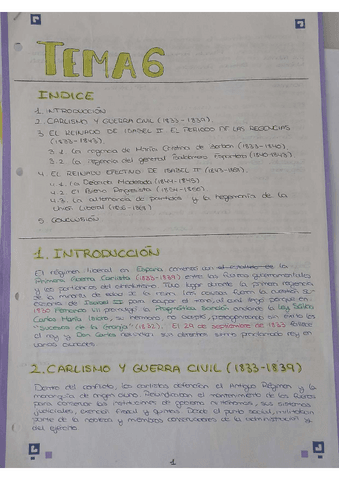 TEMA 6
INDICE
1. INTRODUCCIÓN
2. CARLISMO Y GUERRA CIVIL (1833-1839)
3. EL REINADO DE ISABEL II. EL PERIODO DE LAS REGENCIAS
(1833-1843)
3.1. La regencia de María Cristina de Borbón (1833-1840)
3.2. La regencia del general Baldomero Espartero (1840-1843)
4. EL REINADO EFECTIVO DE ISABEL II (1843-1868).
4.1. La Década Moderada (1844-1854)
4.2. El Bienio Progresista (1854-1856)
4.3. La alternancia de partidos y la hegemonía de la
Unión Liberal (1856-1868)
5. CONCLUSIÓN
1. INTRODUCCIÓN
El régimen liberal en España comenzó con la
Primera Guerra Carlista (1833-1839) entre las fuerzas gubernamentales
y los partidarios del absolutismo. Tuvo lugar durante la primera regencia
de la minoría de edad de la reina.
de Isabel II para ocupar el trono, el cual surgió porque en
1830 Fernando VII promulgó la Pragmática Sanción anulando la Ley Sálica.
Carlos María Isidro, su hermano, no aceptó, protagonizando sin éxito los
"sucesos de la Granja" (1832). El 29 de septiembre de 1833 falleció
el rey y Don Carlos
varias ciudades.
2. CARLISMO Y GUERRA CIVIL (1833-1839)
Dentro del conflicto, los carlistas defendían el Antiguo Régimen y la
monarquía de origen divino. Reivindicaban el mantenimiento de los fueros
para conservar las instituciones de gobierno autónomas, sus sistemas
judiciales, exención fiscal y quintas. Desde el punto social,
parte de la nobleza y miembros conservadores de la administración y
del ejército.
1